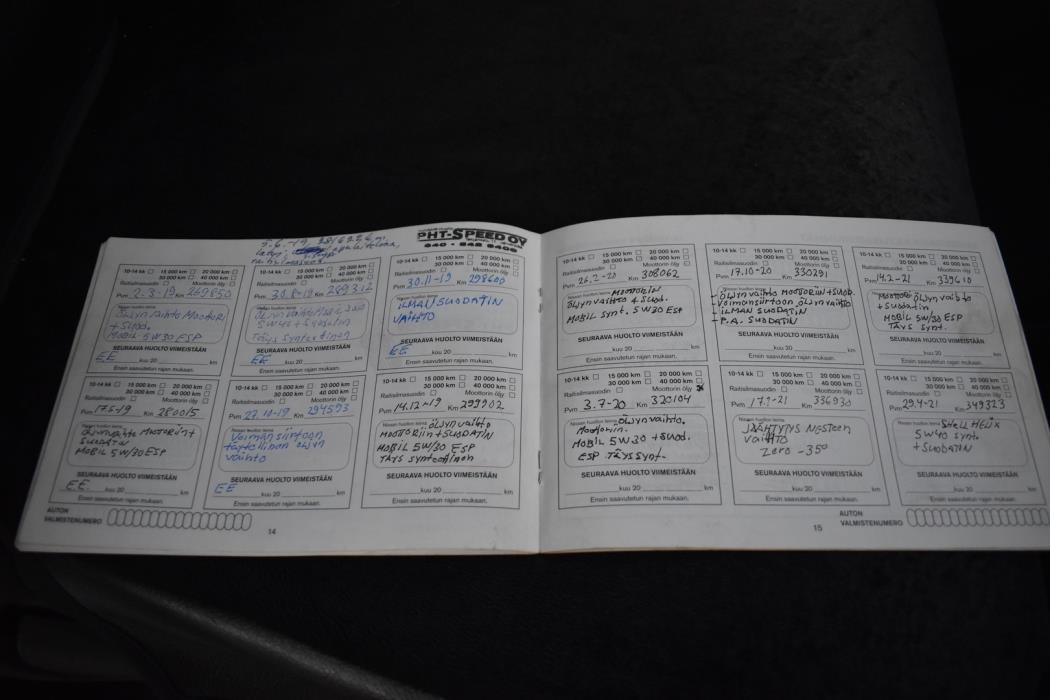 5.6.-19
PHT-SPEED OY
040 - 842 8408
10-14 kk 15 000 km 20 000 km
30 000 km 40 000 km
Raitisilmasuodin Moottorin öljy
Pvm 2-3-19 Km 269850
Nissan huollon leima
ÖLJYN VAIHTO MOOTTORI
+ SUOD.
MOBIL 5W30 ESP
SEURAAVA HUOLTO VIIMEISTÄÄN
EE kuu 20 km
Ensin saavutetun rajan mukaan.
10-14 kk 15 000 km 20 000 km
30 000 km 40 000 km
Raitisilmasuodin Moottorin öljy
Pvm 30.8-19 Km 289312
Nissan huollon leima
5W40 + SUODATIN
TÄYS SYNTEETTINEN
SEURAAVA HUOLTO VIIMEISTÄÄN
EE kuu 20 km
Ensin saavutetun rajan mukaan.
10-14 kk 15 000 km 20 000 km
30 000 km 40 000 km
Raitisilmasuodin Moottorin öljy
Pvm 30.11-19 Km 298600
Nissan huollon leima
ILMAN SUODATIN
VAIHTO
SEURAAVA HUOLTO VIIMEISTÄÄN
EE kuu 20 km
Ensin saavutetun rajan mukaan.
10-14 kk 15 000 km 20 000 km
30 000 km 40 000 km
Raitisilmasuodin Moottorin öljy
Pvm 17.5-19 Km 280015
Nissan huollon leima
ÖLJYN VAIHTO MOOTTORIIN +
SUODATIN
MOBIL 5W/30 ESP
SEURAAVA HUOLTO VIIMEISTÄÄN
EE. kuu 20 km
Ensin saavutetun rajan mukaan.
10-14 kk 15 000 km 20 000 km
30 000 km 40 000 km
Raitisilmasuodin Moottorin öljy
Pvm 27.10-19 Km 294593
Nissan huollon leima
Voiman siirtoon
täydellinen öljyn
vaihto
SEURAAVA HUOLTO VIIMEISTÄÄN
EE kuu 20 km
Ensin saavutetun rajan mukaan.
10-14 kk 15 000 km 20 000 km
30 000 km 40 000 km
Raitisilmasuodin Moottorin öljy
Pvm 14.12-19 Km 299902
Nissan huollon leima
ÖLJYN VAIHTO
MOOTTORIIN + SUODATIN
MOBIL 5W/30 ESP
TÄYS SYNTEETTINEN
SEURAAVA HUOLTO VIIMEISTÄÄN
kuu 20 km
Ensin saavutetun rajan mukaan.
AUTON
VALMISTENUMERO
14
10-14 kk 15 000 km 20 000 km
30 000 km 40 000 km
Raitisilmasuodin Moottorin öljy
Pvm 26.2-20 Km 308062
Nissan huollon leima MOOTTORIN
ÖLJYN VAIHTO + SUOD.
MOBIL SYNT. 5W30 ESP
SEURAAVA HUOLTO VIIMEISTÄÄN
kuu 20 km
Ensin saavutetun rajan mukaan.
10-14 kk 15 000 km 20 000 km
30 000 km 40 000 km
Raitisilmasuodin Moottorin öljy
Pvm 17.10-20 Km 330291
Nissan huollon leima
- ÖLJYN VAIHTO MOOTTORIIN + SUOD.
- VOIMANSIIRTOON ÖLJYN VAIHTO
- ILMAN SUODATIN
- P.A. SUODATIN
SEURAAVA HUOLTO VIIMEISTÄÄN
kuu 20 km
Ensin saavutetun rajan mukaan.
10-14 kk 15 000 km 20 000 km
30 000 km 40 000 km
Raitisilmasuodin Moottorin öljy
Pvm 14.2-21 Km 339610
Nissan huollon leima
MOOTTORI ÖLJYN VAIHTO
+ SUODATIN
MOBIL 5W/30 ESP
TÄYS SYNT.
SEURAAVA HUOLTO VIIMEISTÄÄN
kuu 20 km
Ensin saavutetun rajan mukaan.
10-14 kk 15 000 km 20 000 km
30 000 km 40 000 km
Raitisilmasuodin Moottorin öljy x
Pvm 3.7-20 Km 320104
Nissan huollon leima ÖLJYN VAIHTO.
MOOTTORIIN.
MOBIL 5W30 + SUOD.
ESP TÄYS SYNT.
SEURAAVA HUOLTO VIIMEISTÄÄN
kuu 20 km
Ensin saavutetun rajan mukaan.
10-14 kk 15 000 km 20 000 km
30 000 km 40 000 km
Raitisilmasuodin Moottorin öljy
Pvm 17.1-21 Km 336930
Nissan huollon leima
JÄÄHTYTYS NESTEEN
VAIHTO
ZERO -35°
SEURAAVA HUOLTO VIIMEISTÄÄN
kuu 20 km
Ensin saavutetun rajan mukaan.
10-14 kk 15 000 km 20 000 km
30 000 km 40 000 km
Raitisilmasuodin Moottorin öljy
Pvm 29.4-21 Km 349323
Nissan huollon leima
SHELL HELIX
5W40 SYNT.
+ SUODATIN
SEURAAVA HUOLTO VIIMEISTÄÄN
kuu 20 km
Ensin saavutetun rajan mukaan.
AUTON
VALMISTENUMERO
15